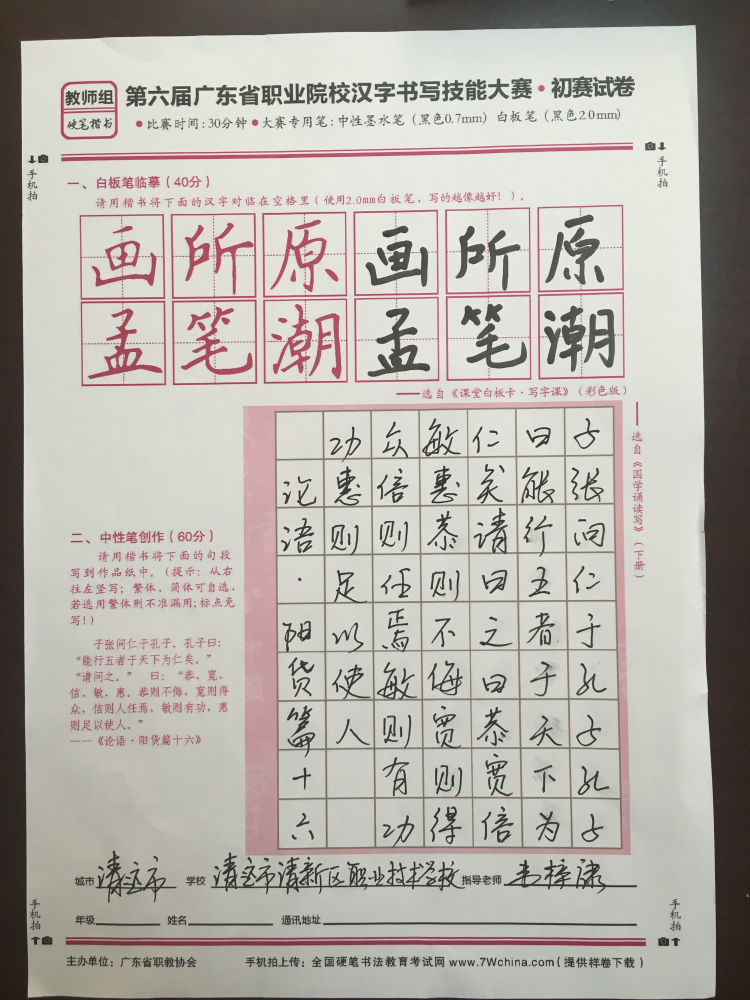 教师组
硬笔楷书
第六届广东省职业院校汉字书写技能大赛·初赛试卷
●比赛时间:30分钟 ●大赛专用笔:中性墨水笔（黑色0.7mm）白板笔（黑色2.0mm）
手机拍
手机拍
一、白板笔临摹（40分）
请用楷书将下面的汉字对临在空格里（使用2.0mm白板笔，写的越像越好！）。
画 所 原 画 所 原
孟 笔 潮 孟 笔 潮
——选自《课堂白板卡·写字课》（彩色版）
二、中性笔创作（60分）
请用楷书将下面的句段
写到作品纸中。（提示：从右
往左竖写；繁体、简体可自选，
若选用繁体则不准漏用；标点免
写！）
子张问仁于孔子。孔子曰：
“能行五者于天下为仁矣。”
“请问之。” 曰：“恭、宽、
信、敏、惠。恭则不侮，宽则得
众，信则人任焉，敏则有功，惠
则足以使人。”
——《论语·阳货篇十六》
子张问仁于孔子孔子
曰能行五者于天下为
仁矣请曰之曰恭宽信
敏惠恭则不侮宽则得
众信则任焉敏则有功
功惠则足以使人
论语·阳货篇十六
——选自《国学诵读写》（下册）
城市 清远市 学校 清远市清新区职业技术学校 指导老师
手机拍
手机拍
年级 姓名 通讯地址
主办单位：广东省职教协会 手机拍上传：全国硬笔书法教育考试网 www.7Wchina.com（提供样卷下载）